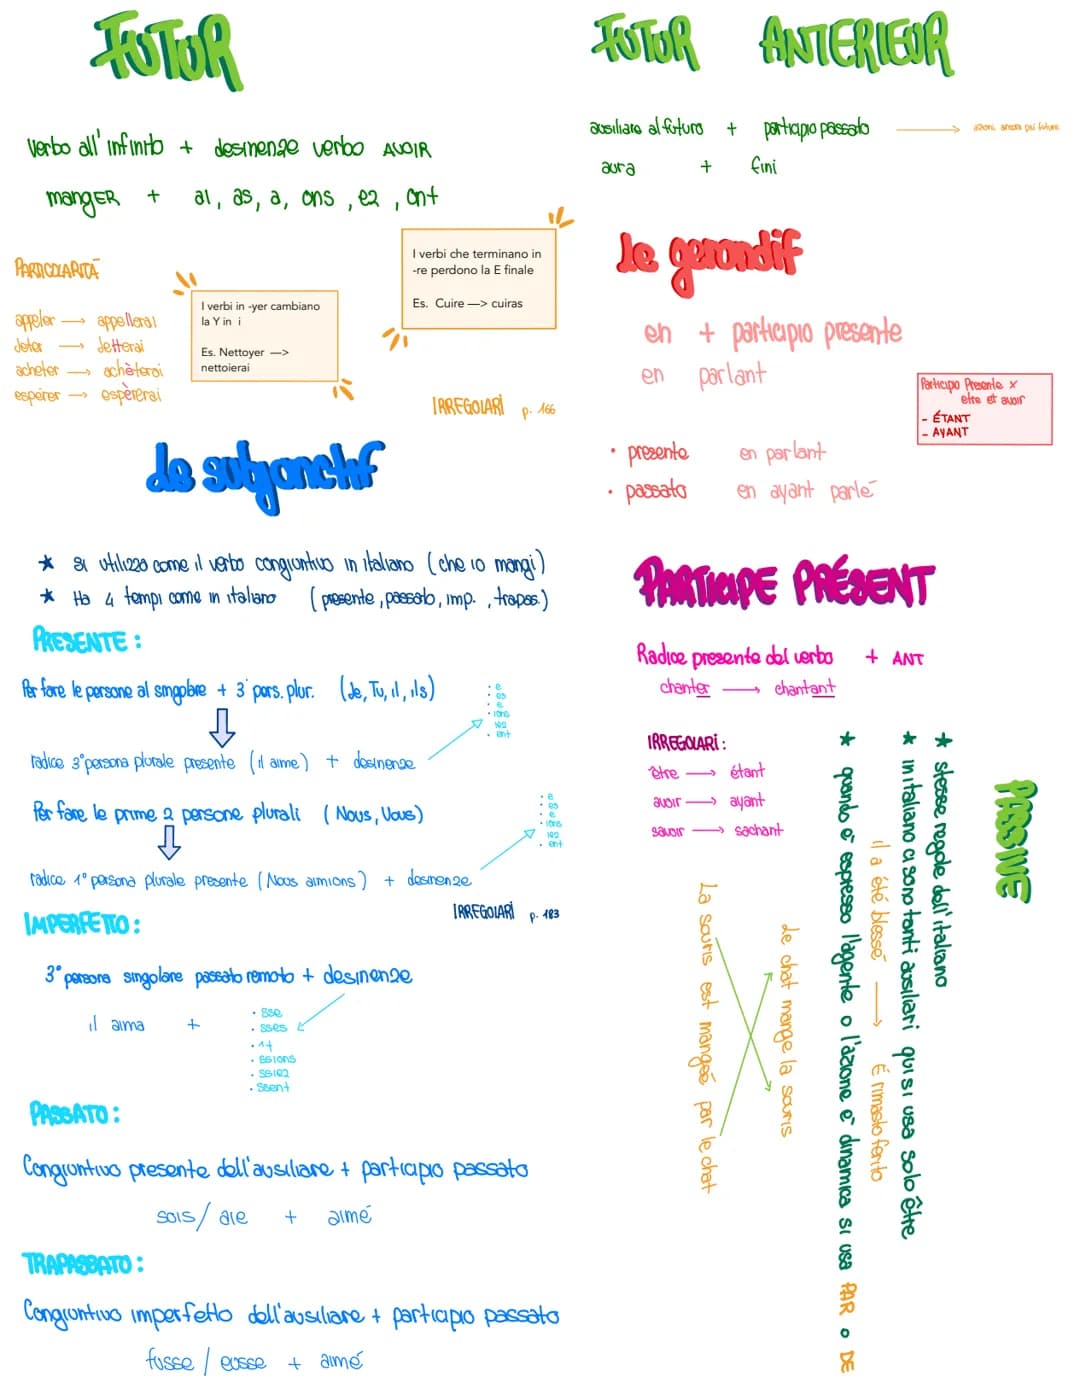 FUTUR
Verbo all'infinito + desinenze verbo AVOIR
mangER + ai, as, a, ons, ez, ont
PARTICOLARITÀ
appeler → appellerai
jeter → jetterai
acheter → achèterai
espérer → espèrerai
I verbi in -yer cambiano
la Y in i
Es. Nettoyer —>
nettoierai
I verbi che terminano in
-re perdono la E finale
Es. Cuire —> cuiras
IRREGOLARI p. 166
Le subjonctif
★ Si utilizza come il verbo congiuntivo in italiano (che io mangi)
★ Ha 4 tempi come in italiano (presente, passato, imp., trapass.)
PRESENTE:
Per fare le persone al singolare + 3ª pers. plur. (Je, Tu, il, ils)
• e
• es
• e
• ions
• iez
• ent
radice 3ª persona plurale presente (il aime) + desinenze
Per fare le prime 2 persone plurali (Nous, Vous)
• e
• es
• e
• ions
• iez
• ent
radice 1ª persona plurale presente (Nous aimions) + desinenze
IRREGOLARI p. 183
IMPERFETTO:
3ª persona singolare passato remoto + desinenze
il aima +
• sse
• sses
• ^t
• ssions
• ssiez
• ssent
PASSATO:
Congiuntivo presente dell'ausiliare + participio passato
sois/ aie + aimé
TRAPASSATO:
Congiuntivo imperfetto dell'ausiliare + participio passato
fusse / eusse + aimé
FUTUR ANTERIEUR
ausiliare al futuro + participio passato → azioni ancora più future
aura + fini
Le gerondif
en + participio presente
en parlant
Participio Presente x
etre et avoir
- ÉTANT
- AYANT
• presente en parlant
• passato en ayant parlé
PARTICIPE PRÉSENT
Radice presente del verbo + ANT
chanter → chantant
IRREGOLARI:
être → étant
avoir → ayant
savoir → sachant
PASSIVE
★ stesse regole dell'italiano
★ in italiano ci sono tanti ausiliari qui si usa solo être
il a été blessé → È rimasto ferito
★ quando è espresso l'agente o l'azione è dinamica si usa PAR o DE
Le chat mange la souris
La souris est mangée par le chat